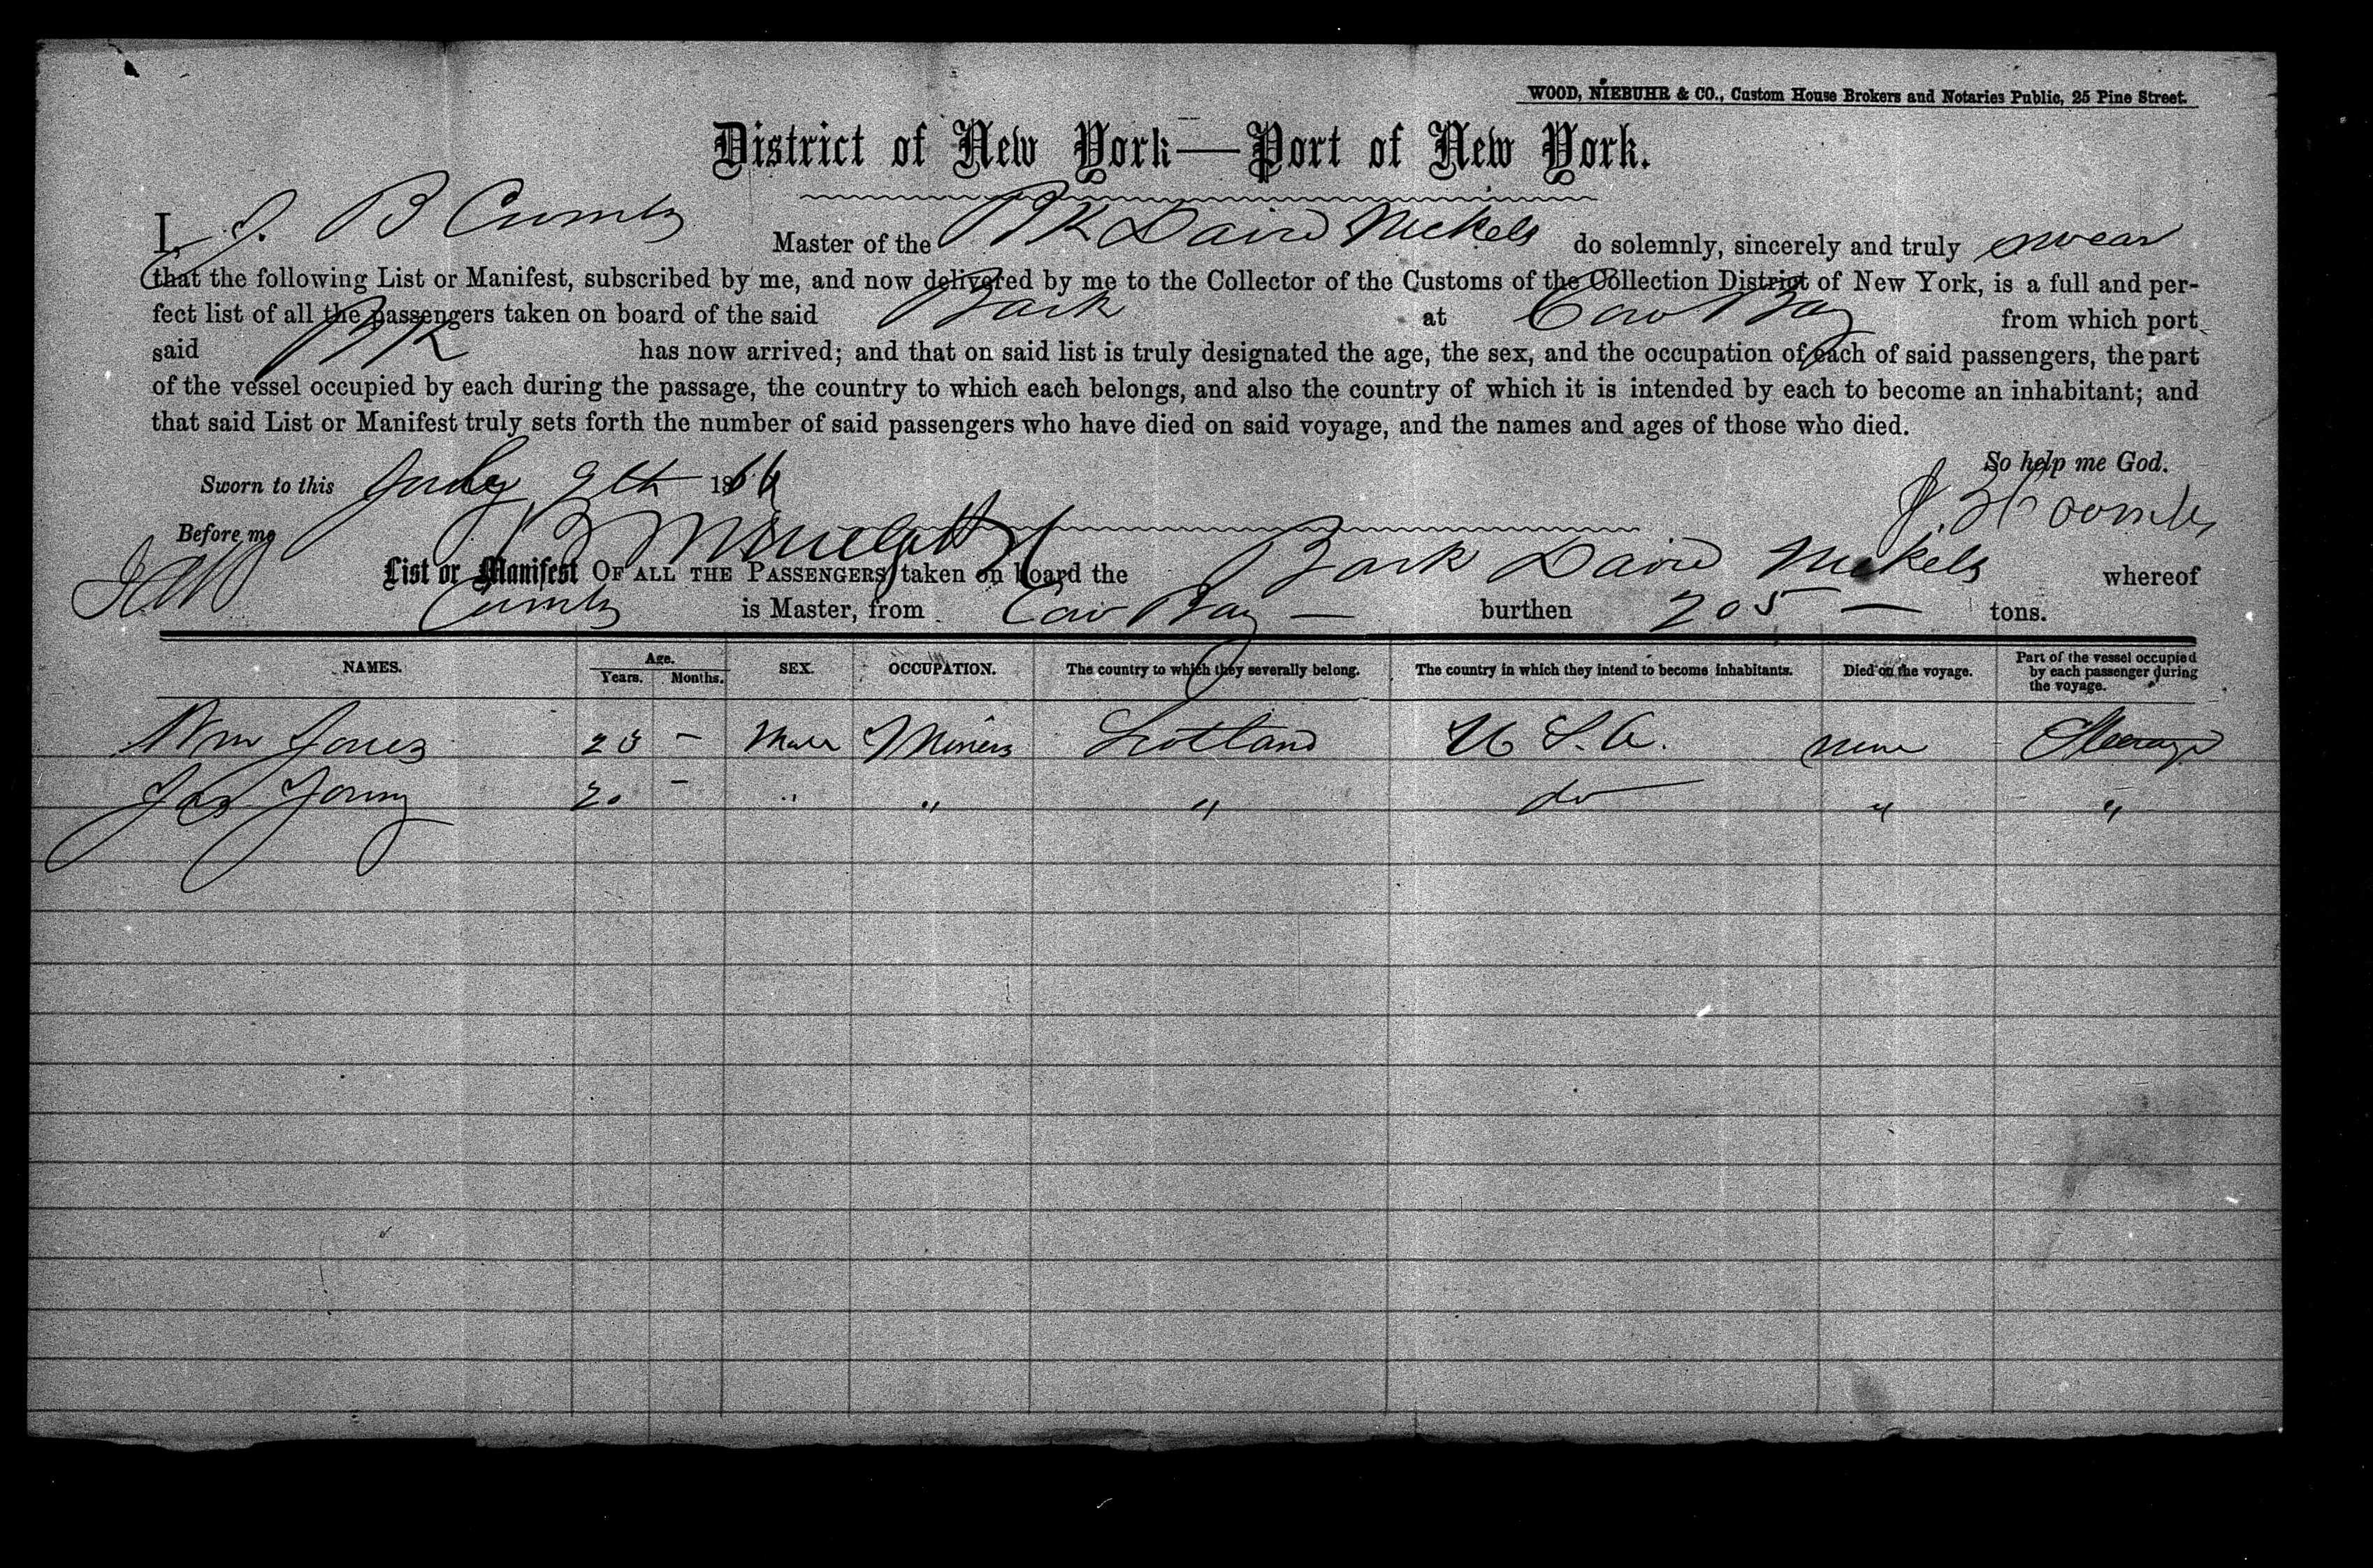 WOOD, NIEBUHR & CO., Custom House Brokers and Notaries Public, 25 Pine Street.
District of New York—Port of New York.
I, J. B Cumbs Master of the BK David Nickels do solemnly, sincerely and truly swear
that the following List or Manifest, subscribed by me, and now delivered by me to the Collector of the Customs of the Collection District of New York, is a full and per-
fect list of all the passengers taken on board of the said Bark at Cow Bay from which port
said BK has now arrived; and that on said list is truly designated the age, the sex, and the occupation of each of said passengers, the part
of the vessel occupied by each during the passage, the country to which each belongs, and also the country of which it is intended by each to become an inhabitant; and
that said List or Manifest truly sets forth the number of said passengers who have died on said voyage, and the names and ages of those who died.
So help me God.
Sworn to this July 9th 1866
J. B Coombs
Before me
List or Manifest OF ALL THE PASSENGERS taken on board the Bark David Nickels whereof
Cumbs is Master, from Cow Bay — burthen 205 — tons.
NAMES. Age. Years. Months. SEX. OCCUPATION. The country to which they severally belong. The country in which they intend to become inhabitants. Died on the voyage. Part of the vessel occupied by each passenger during the voyage.
Wm Jones 23 - Male Miners Scotland U S. A. none Steerage
Jas Young 20 - " " " do " "